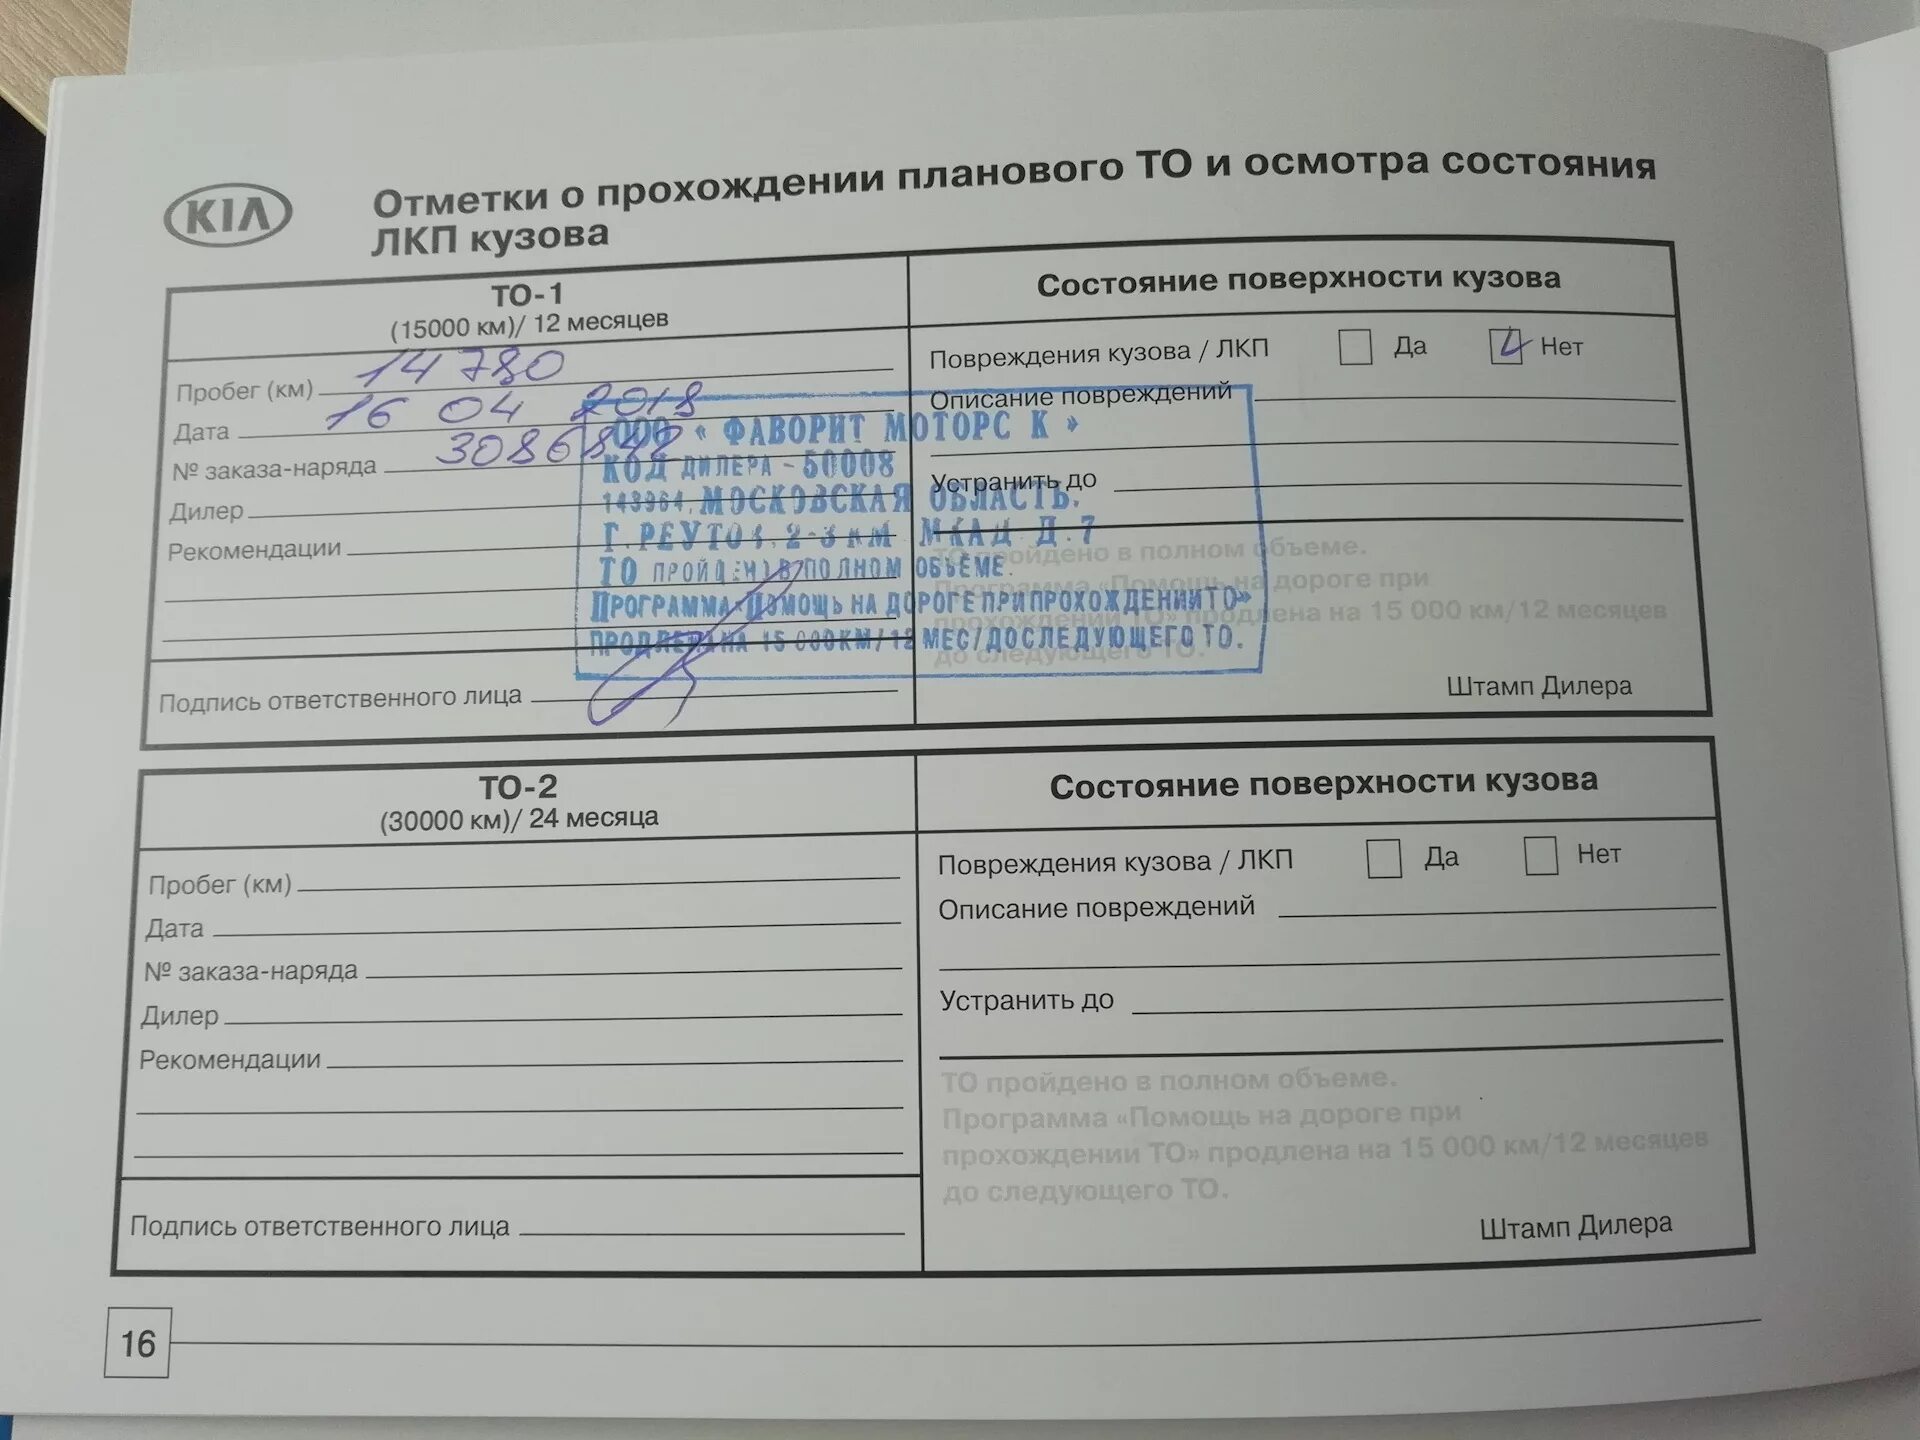 KIA
Отметки о прохождении планового ТО и осмотра состояния
ЛКП кузова
ТО-1
(15000 км)/ 12 месяцев
Состояние поверхности кузова
Пробег (км) 14 780
Дата 16 04 2018
№ заказа-наряда 3086842
Дилер
Рекомендации
Подпись ответственного лица
Повреждения кузова / ЛКП Да Нет
Описание повреждений
Устранить до
ТО пройдено в полном объеме.
Программа «Помощь на дороге при
прохождении ТО» продлена на 15 000 км/12 месяцев
до следующего ТО.
Штамп Дилера
ООО « ФАВОРИТ МОТОРС К »
КОД ДИЛЕРА - 50008
143964, МОСКОВСКАЯ ОБЛАСТЬ.
Г. РЕУТОВ, 2-3 КМ МКАД Д.7
ТО ПРОЙДЕНО В ПОЛНОМ ОБЪЕМЕ.
ПРОГРАММА «ПОМОЩЬ НА ДОРОГЕ ПРИ ПРОХОЖДЕНИИ ТО»
ПРОДЛЕНА НА 15 000КМ/12 МЕС/ДО СЛЕДУЮЩЕГО ТО.
ТО-2
(30000 км)/ 24 месяца
Состояние поверхности кузова
Пробег (км)
Дата
№ заказа-наряда
Дилер
Рекомендации
Подпись ответственного лица
Повреждения кузова / ЛКП Да Нет
Описание повреждений
Устранить до
ТО пройдено в полном объеме.
Программа «Помощь на дороге при
прохождении ТО» продлена на 15 000 км/12 месяцев
до следующего ТО.
Штамп Дилера
16